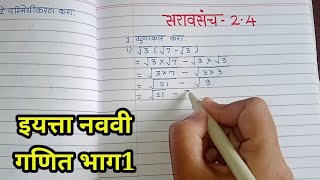 चे परिमेयीकरण करा.
सरावसंच - 2.4
गुणाकार करा.
i) √3 (√7 - √3)
= √3 × √7 - √3 × √3
= √3×7 - √3×3
= √21 - √9
= √21 -
इयत्ता नववी
गणित भाग1